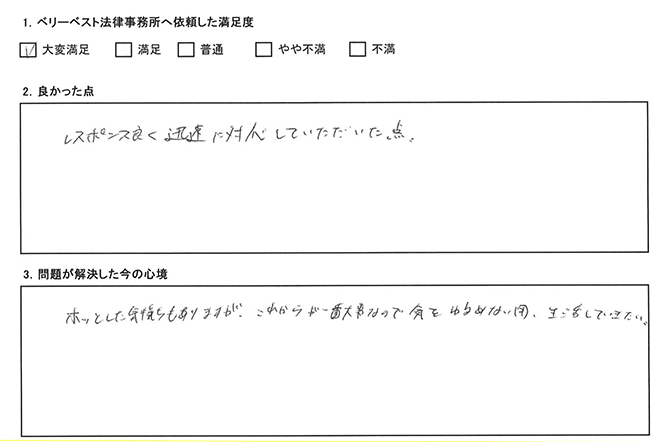 1. ベリーベスト法律事務所へ依頼した満足度
大変満足 満足 普通 やや不満 不満
2. 良かった点
レスポンス良く迅速に対応していただいた点。
3. 問題が解決した今の心境
ホッとした気持ちもありますが、これからが一番大事なので気をゆるめない用、生活していきたい。